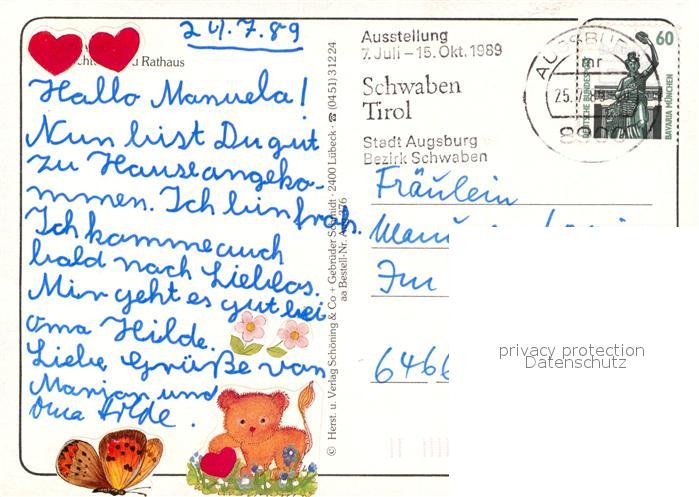 24.7.89
u Rathaus
Hallo Manuela!
Nun bist Du gut
zu Hause angeko-
mmen. Ich bin froh.
Ich komme auch
bald nach Lieblos.
Mir geht es gut bei
Oma Hilde.
Liebe Grüße von
Marjan und
Oma Hilde.
© Herst. u. Verlag Schöning & Co + Gebrüder Schmidt · 2400 Lübeck · ☎ (0451) 31224
aa Bestell-Nr.
Ausstellung
7. Juli – 15. Okt. 1989
Schwaben
Tirol
Stadt Augsburg
Bezirk Schwaben
AUGSBURG
mr
25.7.89
8900
60
DEUTSCHE BUNDESPOST
BAVARIA MÜNCHEN
Fräulein
Im
6466
privacy protection
Datenschutz